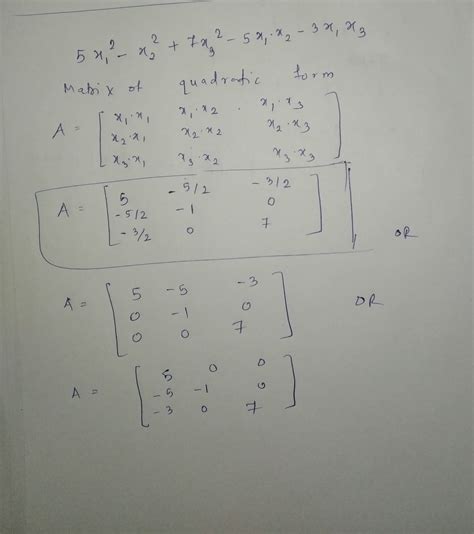 5 x₁² - x₂² + 7x₃² - 5x₁·x₂ - 3x₁x₃
Matrix of quadratic form
A = [ x₁·x₁ x₁·x₂ · x₁·x₃
x₂·x₁ x₂·x₂ x₂·x₃
x₃·x₁ x₃·x₂ x₃·x₃ ]
A = [ 5 -5/2 -3/2
-5/2 -1 0
-3/2 0 7 ] OR
A = [ 5 -5 -3
0 -1 0
0 0 7 ] OR
A = [ 5 0 0
-5 -1 0
-3 0 7 ]